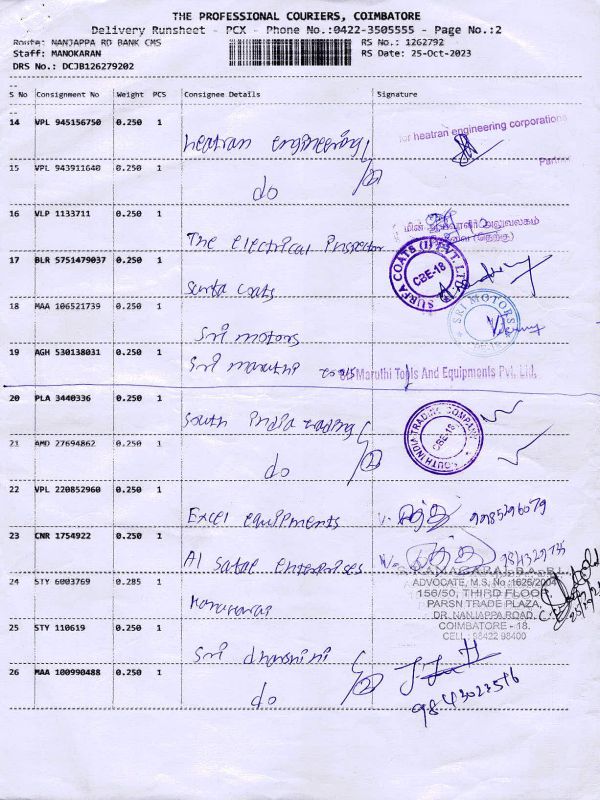 THE PROFESSIONAL COURIERS, COIMBATORE
Delivery Runsheet - PCX - Phone No.:0422-3505555 - Page No.:2
Route: NANJAPPA RD BANK CMS
RS No.: 1262792
Staff: MANOKARAN
RS Date: 25-Oct-2023
DRS No.: DCJB126279202
S No Consignment No Weight PCS Consignee Details Signature
14 VPL 945156750 0.250 1 heatran engineering
for heatran engineering corporations
Partner
15 VPL 943911640 0.250 1 do
16 VLP 1133711 0.250 1 The Electrical Inspector
மின் ஆய்வாளர் அலுவலகம்
(தெற்கு)
17 BLR 5751479037 0.250 1 surfa coats
SURFA COATS (I) PVT. LTD.
CBE-18
18 MAA 106521739 0.250 1 Sri motors
SRI MOTORS
19 AGH 530138031 0.250 1 Sri maruthi tools
Sri Maruthi Tools And Equipments Pvt. Ltd.
20 PLA 3440336 0.250 1 South India trading
SOUTH INDIA TRADING COMPANY
CBE-18
21 AMD 27694862 0.250 1 do
22 VPL 220852960 0.250 1 Excel equipments
23 CNR 1754922 0.250 1 Al enterprises
24 STY 6003769 0.285 1
ADVOCATE, M.S. No :1626/2004
156/50, THIRD FLOOR
PARSN TRADE PLAZA,
DR. NANJAPPA ROAD,
COIMBATORE - 18.
CELL : 98422 98400
25 STY 110619 0.250 1 Sri dharshini
26 MAA 100990488 0.250 1 do
9843023516